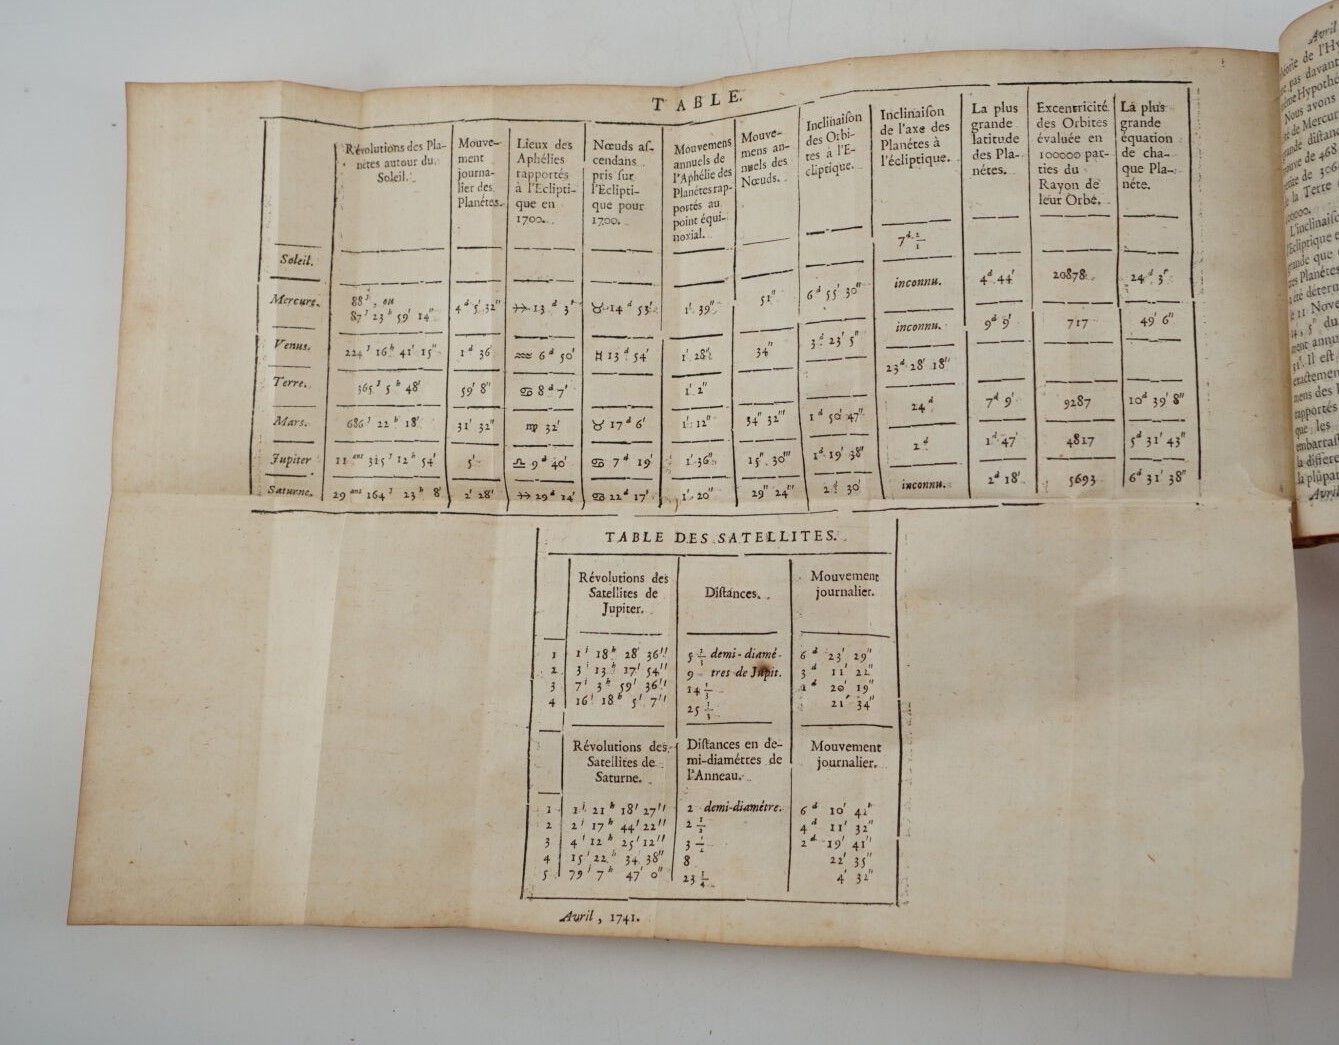 TABLE.
Révolutions des Pla-
nétes autour du
Soleil.
Mouve-
ment
journa-
lier des
Planétes.
Lieux des
Aphélies
rapportés
à l'Eclipti-
que en
1700.
Nœuds aſ-
cendans
pris ſur
l'Eclipti-
que pour
1700.
Mouvemens
annuels de
l'Aphélie des
Planétes rap-
portés au
point équi-
noxial.
Mouve-
mens an-
nuels des
Nœuds.
Inclinaiſon
des Orbi-
tes à l'E-
cliptique.
Inclinaiſon
de l'axe des
Planétes à
l'écliptique.
La plus
grande
latitude
des Pla-
nétes.
Excentricité
des Orbites
évaluée en
100000 par-
ties du
Rayon de
leur Orbe.
La plus
grande
équation
de cha-
que Pla-
néte.
Soleil. 7ᵈ 1/2
Mercure. 88ʲ, ou
87ʲ 23ʰ 59′ 14″ 4ᵈ 5′ 32″ ♐ 13ᵈ 3′ ♉ 14ᵈ 53′ 1′ 39″ 51″ 6ᵈ 55′ 30″ inconnu. 4ᵈ 44′ 20878 24ᵈ 3′
Venus. 224ʲ 16ʰ 41′ 15″ 1ᵈ 36′ ♒ 6ᵈ 50′ ♊ 13ᵈ 54′ 1′ 28″ 34″ 3ᵈ 23′ 5″ inconnu. 9ᵈ 9′ 717 49′ 6″
Terre. 365ʲ 5ʰ 48′ 59′ 8″ ♋ 8ᵈ 7′ 1′ 2″ 23ᵈ 28′ 18″
Mars. 686ʲ 22ʰ 18′ 31′ 32″ ♍ 32′ ♉ 17ᵈ 6′ 1′ 12″ 34″ 32‴ 1ᵈ 50′ 47″ 24ᵈ 7ᵈ 9′ 9287 10ᵈ 39′ 8″
Jupiter 11 ᵃⁿˢ 315ʲ 12ʰ 54′ 5′ ♎ 9ᵈ 40′ ♋ 7ᵈ 19′ 1′ 36″ 15″ 30‴ 1ᵈ 19′ 38″ 2ᵈ 1ᵈ 47′ 4817 5ᵈ 31′ 43″
Saturne. 29 ᵃⁿˢ 164ʲ 23ʰ 8′ 2′ 28′ ♐ 29ᵈ 14′ ♋ 22ᵈ 17′ 1′ 20″ 29″ 24‴ 2ᵈ 30′ inconnu. 2ᵈ 18′ 5693 6ᵈ 31′ 38″
TABLE DES SATELLITES.
Révolutions des
Satellites de
Jupiter.
Diſtances.
Mouvement
journalier.
1 1ʲ 18ʰ 28′ 36″ 5 2/3 demi-diamé- 6ᵈ 23′ 29″
2 3ʲ 13ʰ 17′ 54″ 9 tres de Jupit. 3ᵈ 11′ 22″
3 7ʲ 3ʰ 59′ 36″ 14 1/3 1ᵈ 20′ 19″
4 16ʲ 18ʰ 5′ 7″ 25 1/3 21′ 34″
Révolutions des
Satellites de
Saturne.
Diſtances en de-
mi-diamétres de
l'Anneau.
Mouvement
journalier.
1 1ʲ 21ʰ 18′ 27″ 2 demi-diamétre. 6ᵈ 10′ 42″
2 2ʲ 17ʰ 44′ 22″ 2 1/2 4ᵈ 11′ 32″
3 4ʲ 12ʰ 25′ 12″ 3 1/2 2ᵈ 19′ 41″
4 15ʲ 22ʰ 34′ 38″ 8 22′ 35″
5 79ʲ 7ʰ 47′ 0″ 23 1/4 4′ 32″
Avril, 1741.
Avril
de l'Hy
pas davant
Hypothe
Nous avons
de Mercur
diſtan
de 468
de 306
la Terre
L'inclinaiſ
l'Ecliptique e
grande que
Planétes
été déter
11 Nove
du
ment annu
Il eſt
exactemen
mens des
rapportés
que les
embarraſ
la différe
la plûpar
Avril